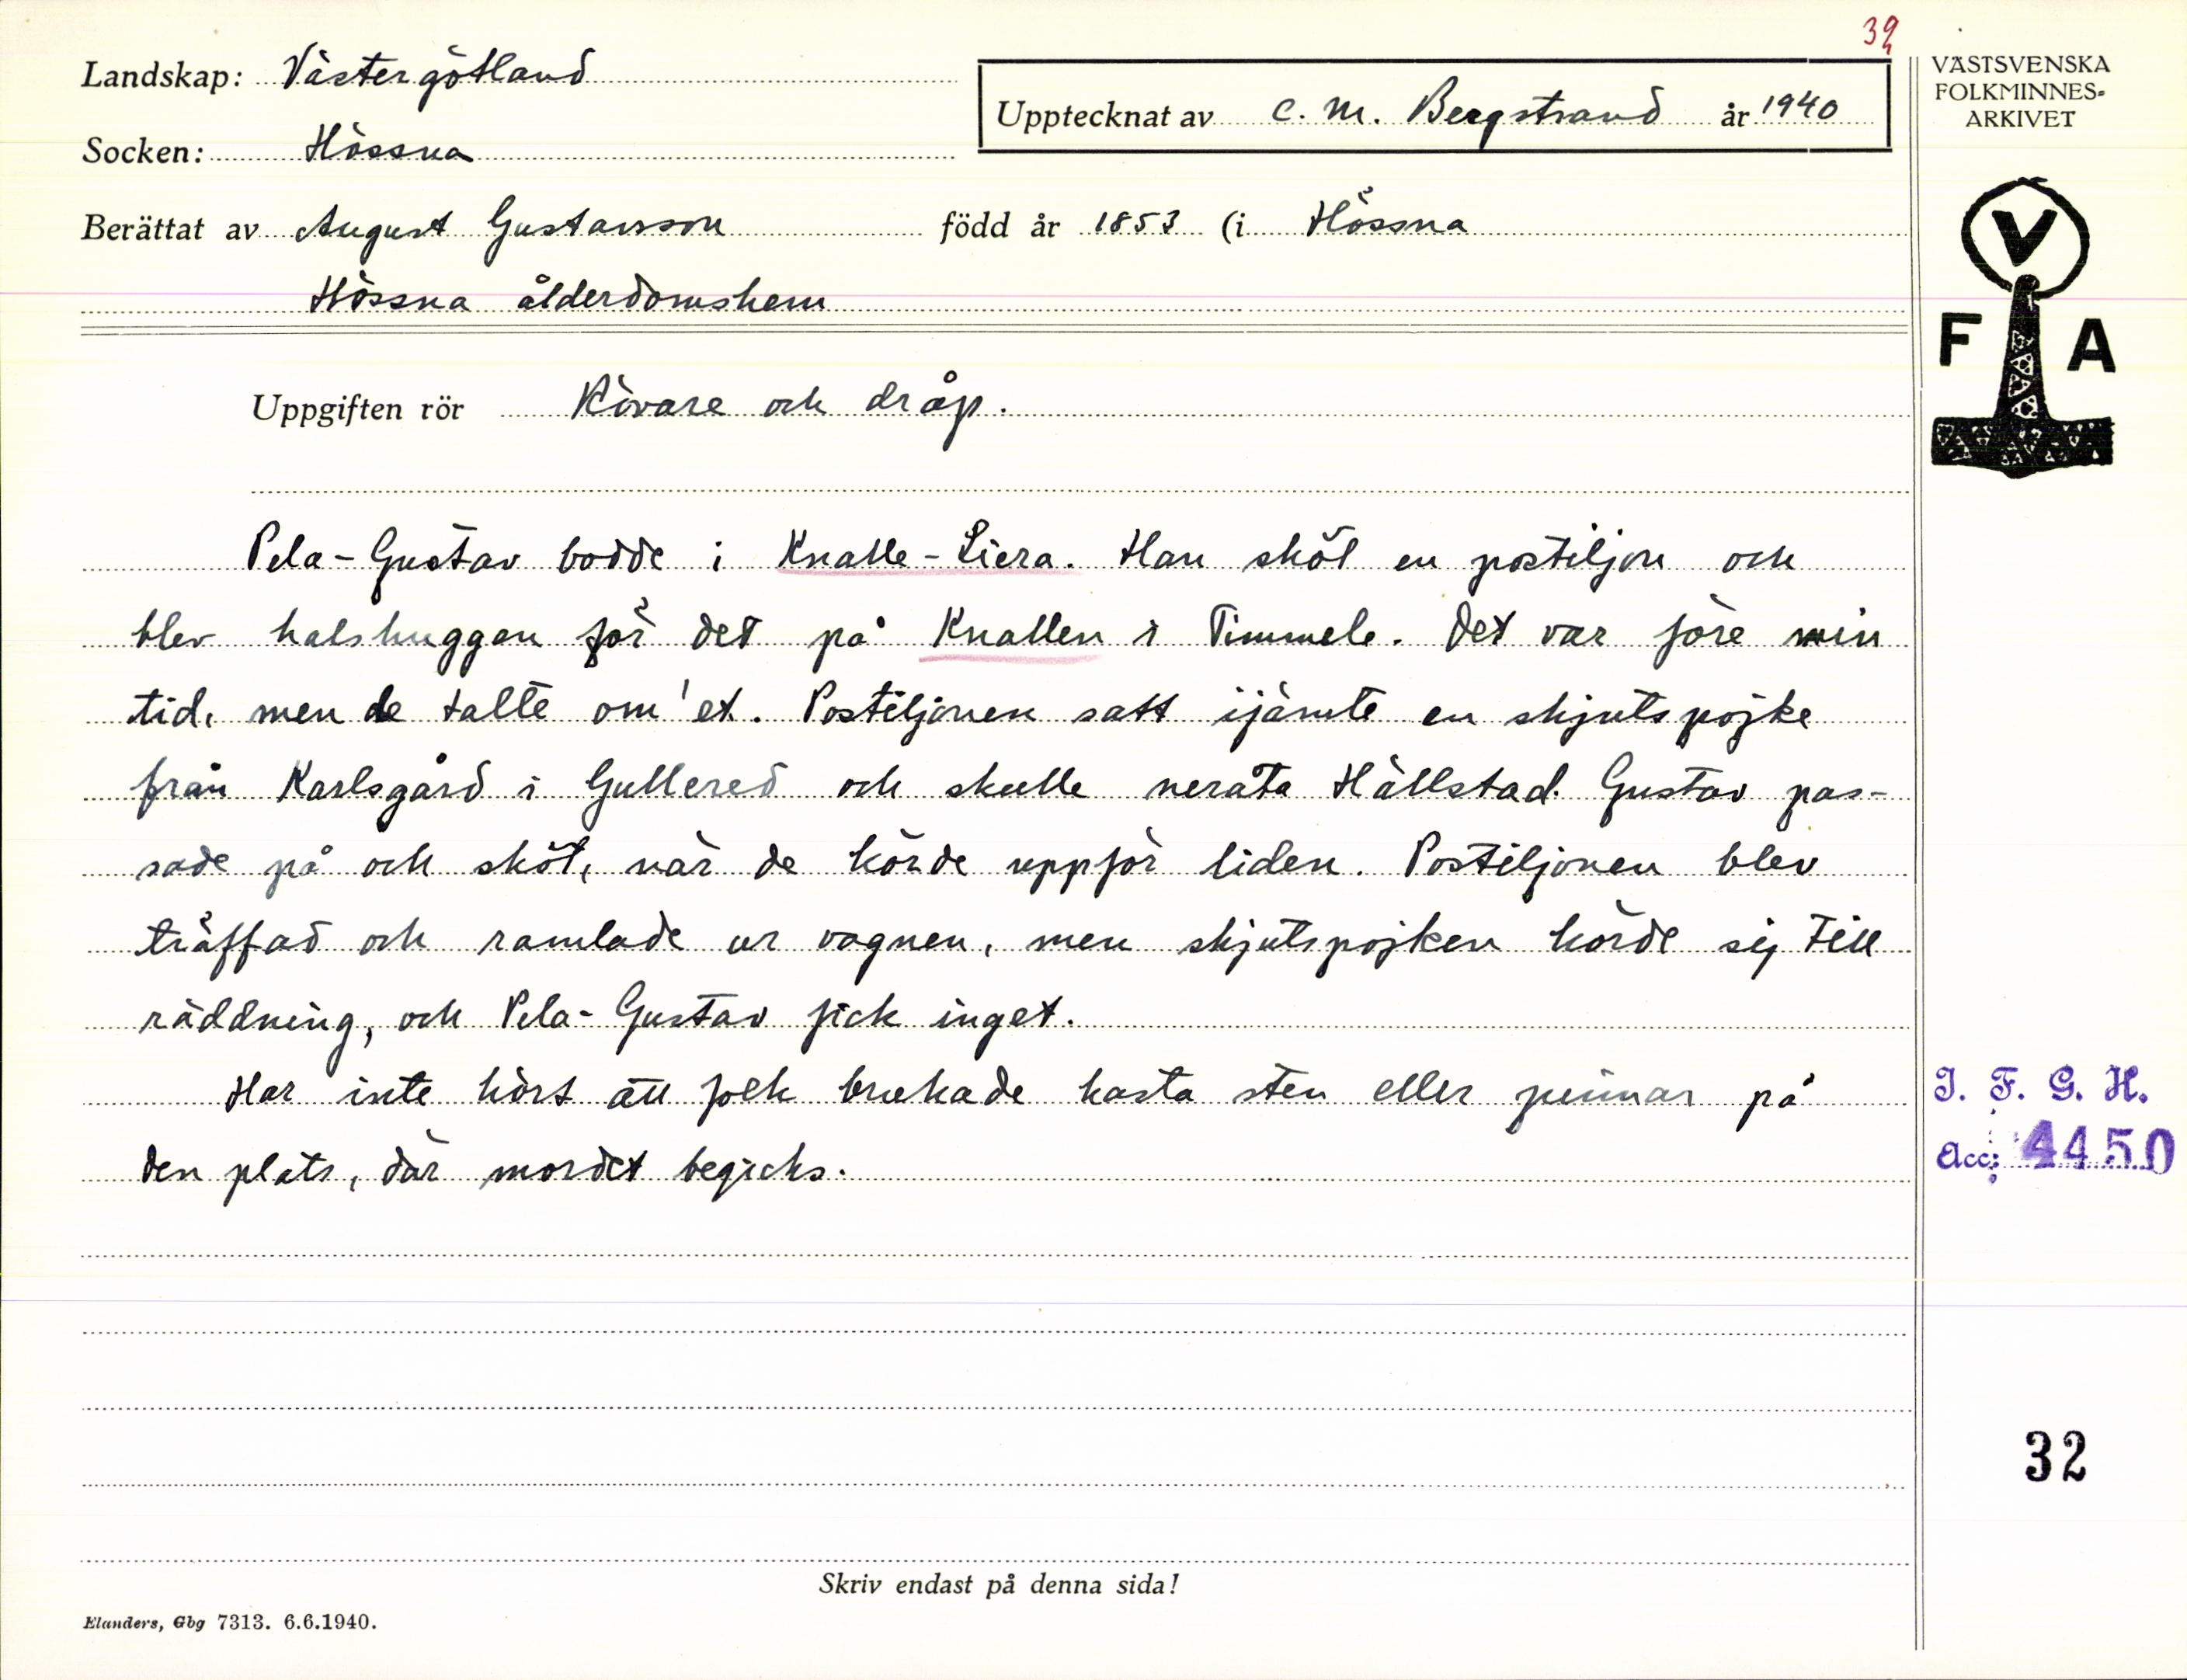 39
Landskap: Västergötland
Upptecknat av C. M. Bergstrand år 1940
Socken: Hössna
Berättat av August Gustavsson född år 1853 (i Hössna
Hössna ålderdomshem
Uppgiften rör Rövare och dråp.
Pela-Gustav bodde i Knalle-Liera. Han sköt en postiljon och
blev halshuggan för det på Knallen i Timmele. Det var före min
tid, men de talte om'et. Postiljonen satt ijämte en skjutspojke
från Karlsgård i Gullered och skulle neråta Hällstad. Gustav pas-
sade på och sköt, när de körde uppför liden. Postiljonen blev
träffad och ramlade ur vagnen, men skjutspojken körde sej till
räddning, och Pela-Gustav fick inget.
Har inte hört att folk brukade kasta sten eller pinnar på
den plats, där mordet begicks.
Skriv endast på denna sida!
Elanders, Gbg 7313. 6.6.1940.
VÄSTSVENSKA
FOLKMINNES-
ARKIVET
V
F A
I. F. G. H.
Acc: 4450
32